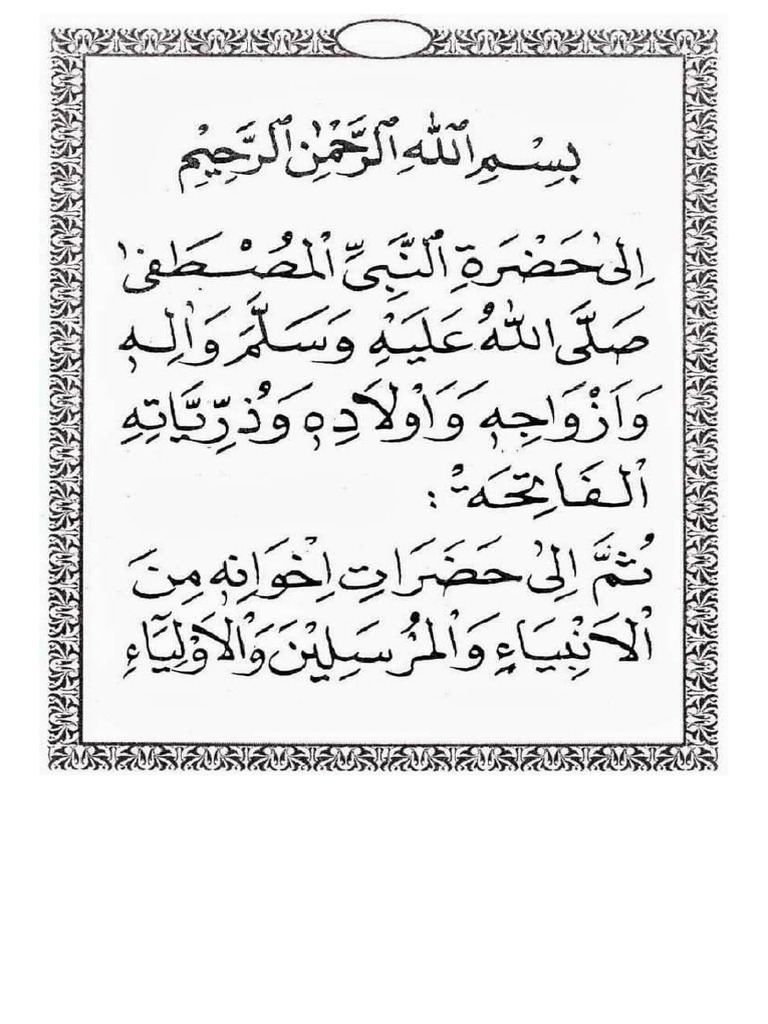 بِسْمِ اللّٰهِ الرَّحْمٰنِ الرَّحِيْمِ
اِلىٰ حَضْرَةِ النَّبِيِّ الْمُصْطَفىٰ
صَلَّى اللّٰهُ عَلَيْهِ وَسَلَّمَ وَاٰلِهٖ
وَاَزْوَاجِهٖ وَاَوْلَادِهٖ وَذُرِّيَّاتِهِ
الْفَاتِحَةْ :
ثُمَّ اِلىٰ حَضَرَاتِ اِخْوَانِهٖ مِنَ
الْاَنْبِيَاءِ وَالْمُرْسَلِيْنَ وَالْاَوْلِيَاءِ